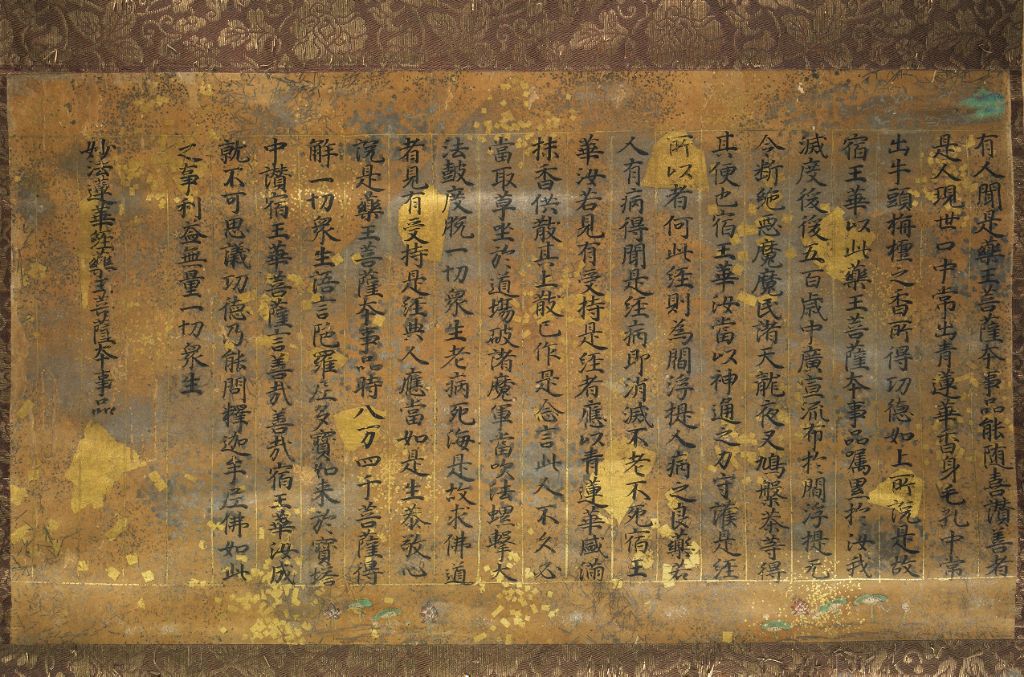 有人聞是藥王菩薩本事品能随喜讃善者
是人現世口中常出青蓮華香身毛孔中常
出牛頭栴檀之香所得功德如上所說是故
宿王華以此藥王菩薩本事品囑累於汝我
滅度後後五百歳中廣宣流布於閻浮提无
令断絶惡魔魔民諸天龍夜叉鳩槃荼等得
其便也宿王華汝當以神通之力守護是経
所以者何此経則為閻浮提人病之良藥若
人有病得聞是経病即消滅不老不死宿王
華汝若見有受持是経者應以青蓮華盛滿
抹香供散其上散已作是念言此人不久必
當取草坐於道場破諸魔軍當吹法螺擊大
法皷度脱一切衆生老病死海是故求佛道
者見有受持是経典人應當如是生恭敬心
說是藥王菩薩本事品時八万四千菩薩得
解一切衆生語言陁羅尼多寶如来於寶塔
中讃宿王華菩薩言善㢤善㢤宿王華汝成
就不可思議功德乃能問釋迦牟尼佛如此
之事利益無量一切衆生
妙法蓮華経藥王菩薩本事品